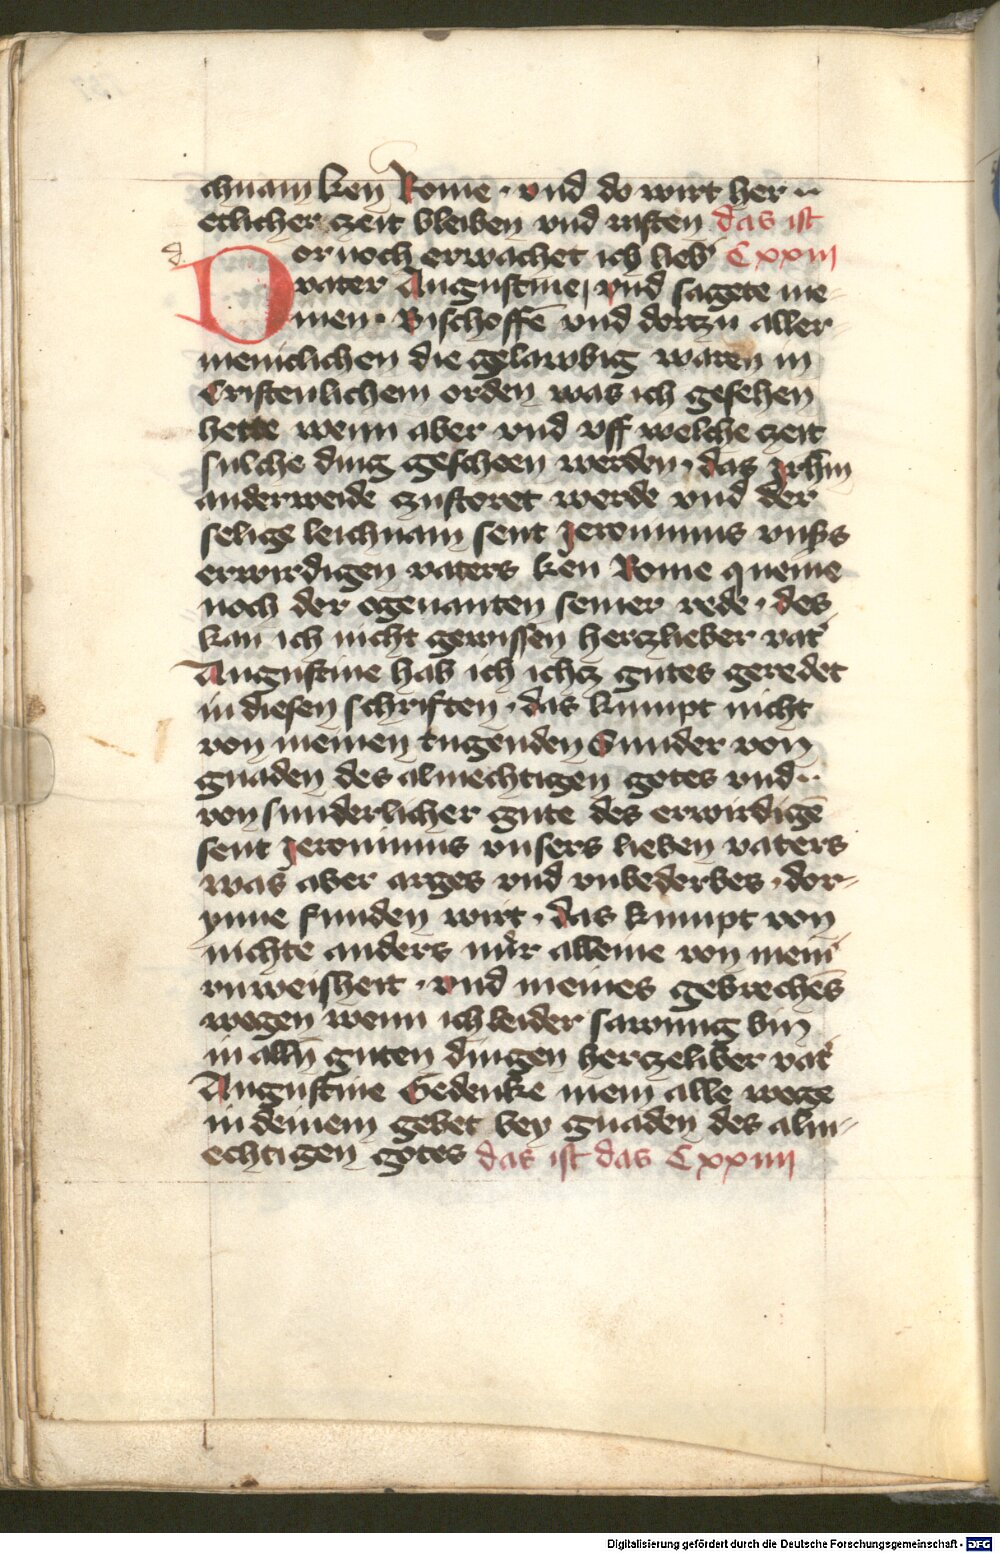 chnam ken Rome · vnd do wirt her ··
etlicher zeit bleiben vnd rasten das ist
d. Dor noch erwachet ich lieb' Cxxiii
vater Augustine, vnd sagete me-
inen · Bischoffē vnd dortzu aller-
meniclichen die gelawbig waren in
Cristenlichem orden was ich gesehen
hette wenn aber vnd vff welche zeit
sulche ding gescheen werden, das irl̄m
anderweide zustoret werde vnd der
selige leichnam sent jeronimus vnß's
erwirdigen vaters ken Rome queme
noch der ogenanten seiner rede · des
kan ich nicht gewissen hertzlieber vat'
Augustine hab ich ichcz gutes geredet
in diesen schriften · das kumpt nicht
von meinen tugenden Sunder von
gnaden des almechtigen gotes vnd ··
von sunderlicher gute des erwirdigē
sent jeronimus vnsers lieben vaters
was aber arges vnd vnbederbes · dor-
ynne funden wirt · das kumpt von
nichte anders nur alleine von mein'
vnweisheit · vnd meines gebrechēs
wegen wenn ich leider sawmig bin
in alln̄ guten dingen hertzeliber vat'
Augustine Gedenke mein alle wege
in deinem gebet bey gnaden des alm-
echtigen gotes das ist das Cxxiiii
Digitalisierung gefördert durch die Deutsche Forschungsgemeinschaft - DFG